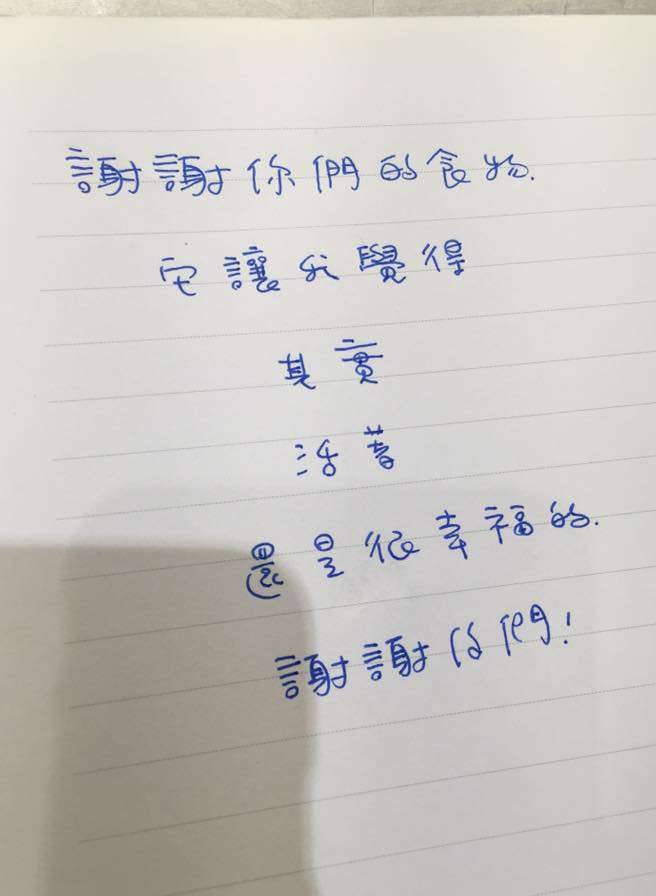 謝謝你們的食物.
它讓我覺得
其實
活著
還是很幸福的.
謝謝你們!